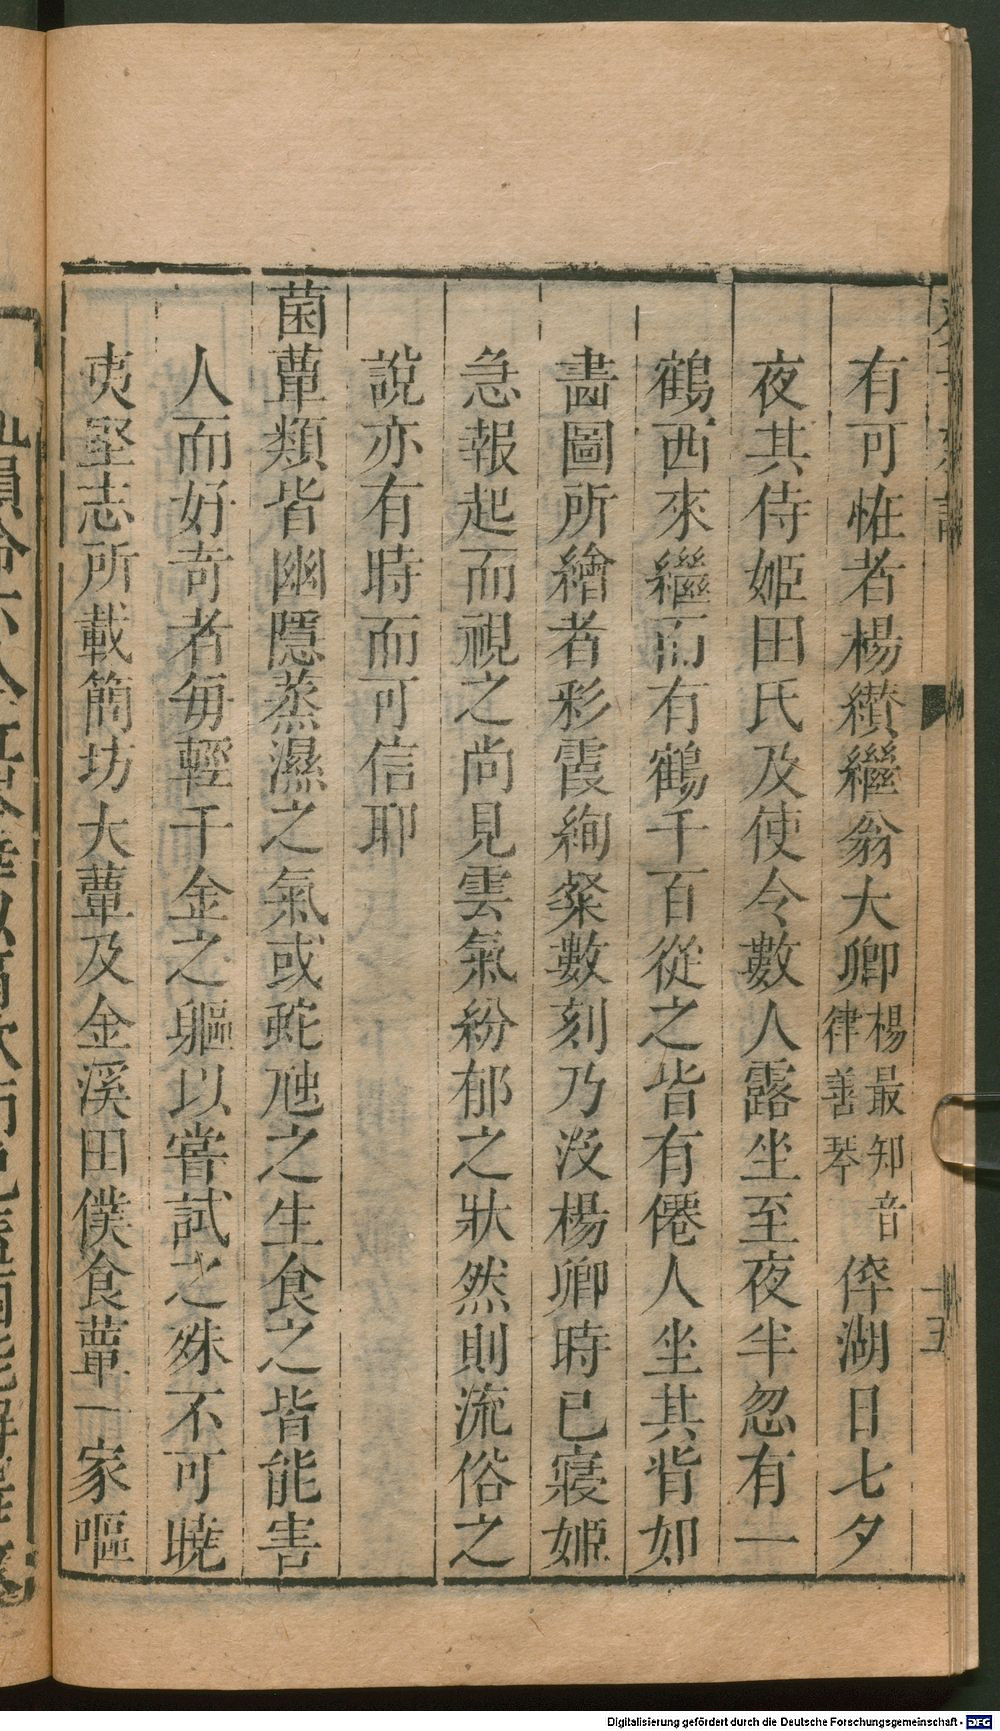 有可恠者楊纉繼翁大卿楊最知音律善琴倅湖日七夕
夜其侍姬田氏及使令數人露坐至夜半忽有一
鶴西來繼而有鶴千百從之皆有僊人坐其背如
畵圖所繪者彩霞絢粲數刻乃沒楊卿時已寢姬
急報起而視之尚見雲氣紛郁之狀然則流俗之
說亦有時而可信耶
菌蕈類皆幽隱蒸濕之氣或蛇虺之生食之皆能害
人而好奇者每輕千金之軀以嘗試之殊不可曉
夷堅志所載簡坊大蕈及金溪田僕食蕈一家嘔
五
Digitalisierung gefördert durch die Deutsche Forschungsgemeinschaft - DFG